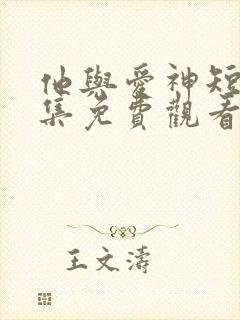 他與愛神短
集免費觀看
王文濤